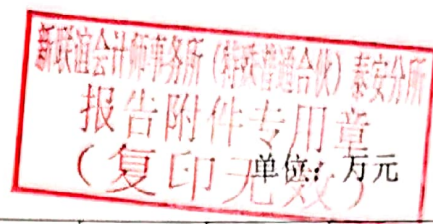 新联谊会计师事务所(特殊普通合伙)泰安分所
报告附件专用章
(复印无效)
单位:万元